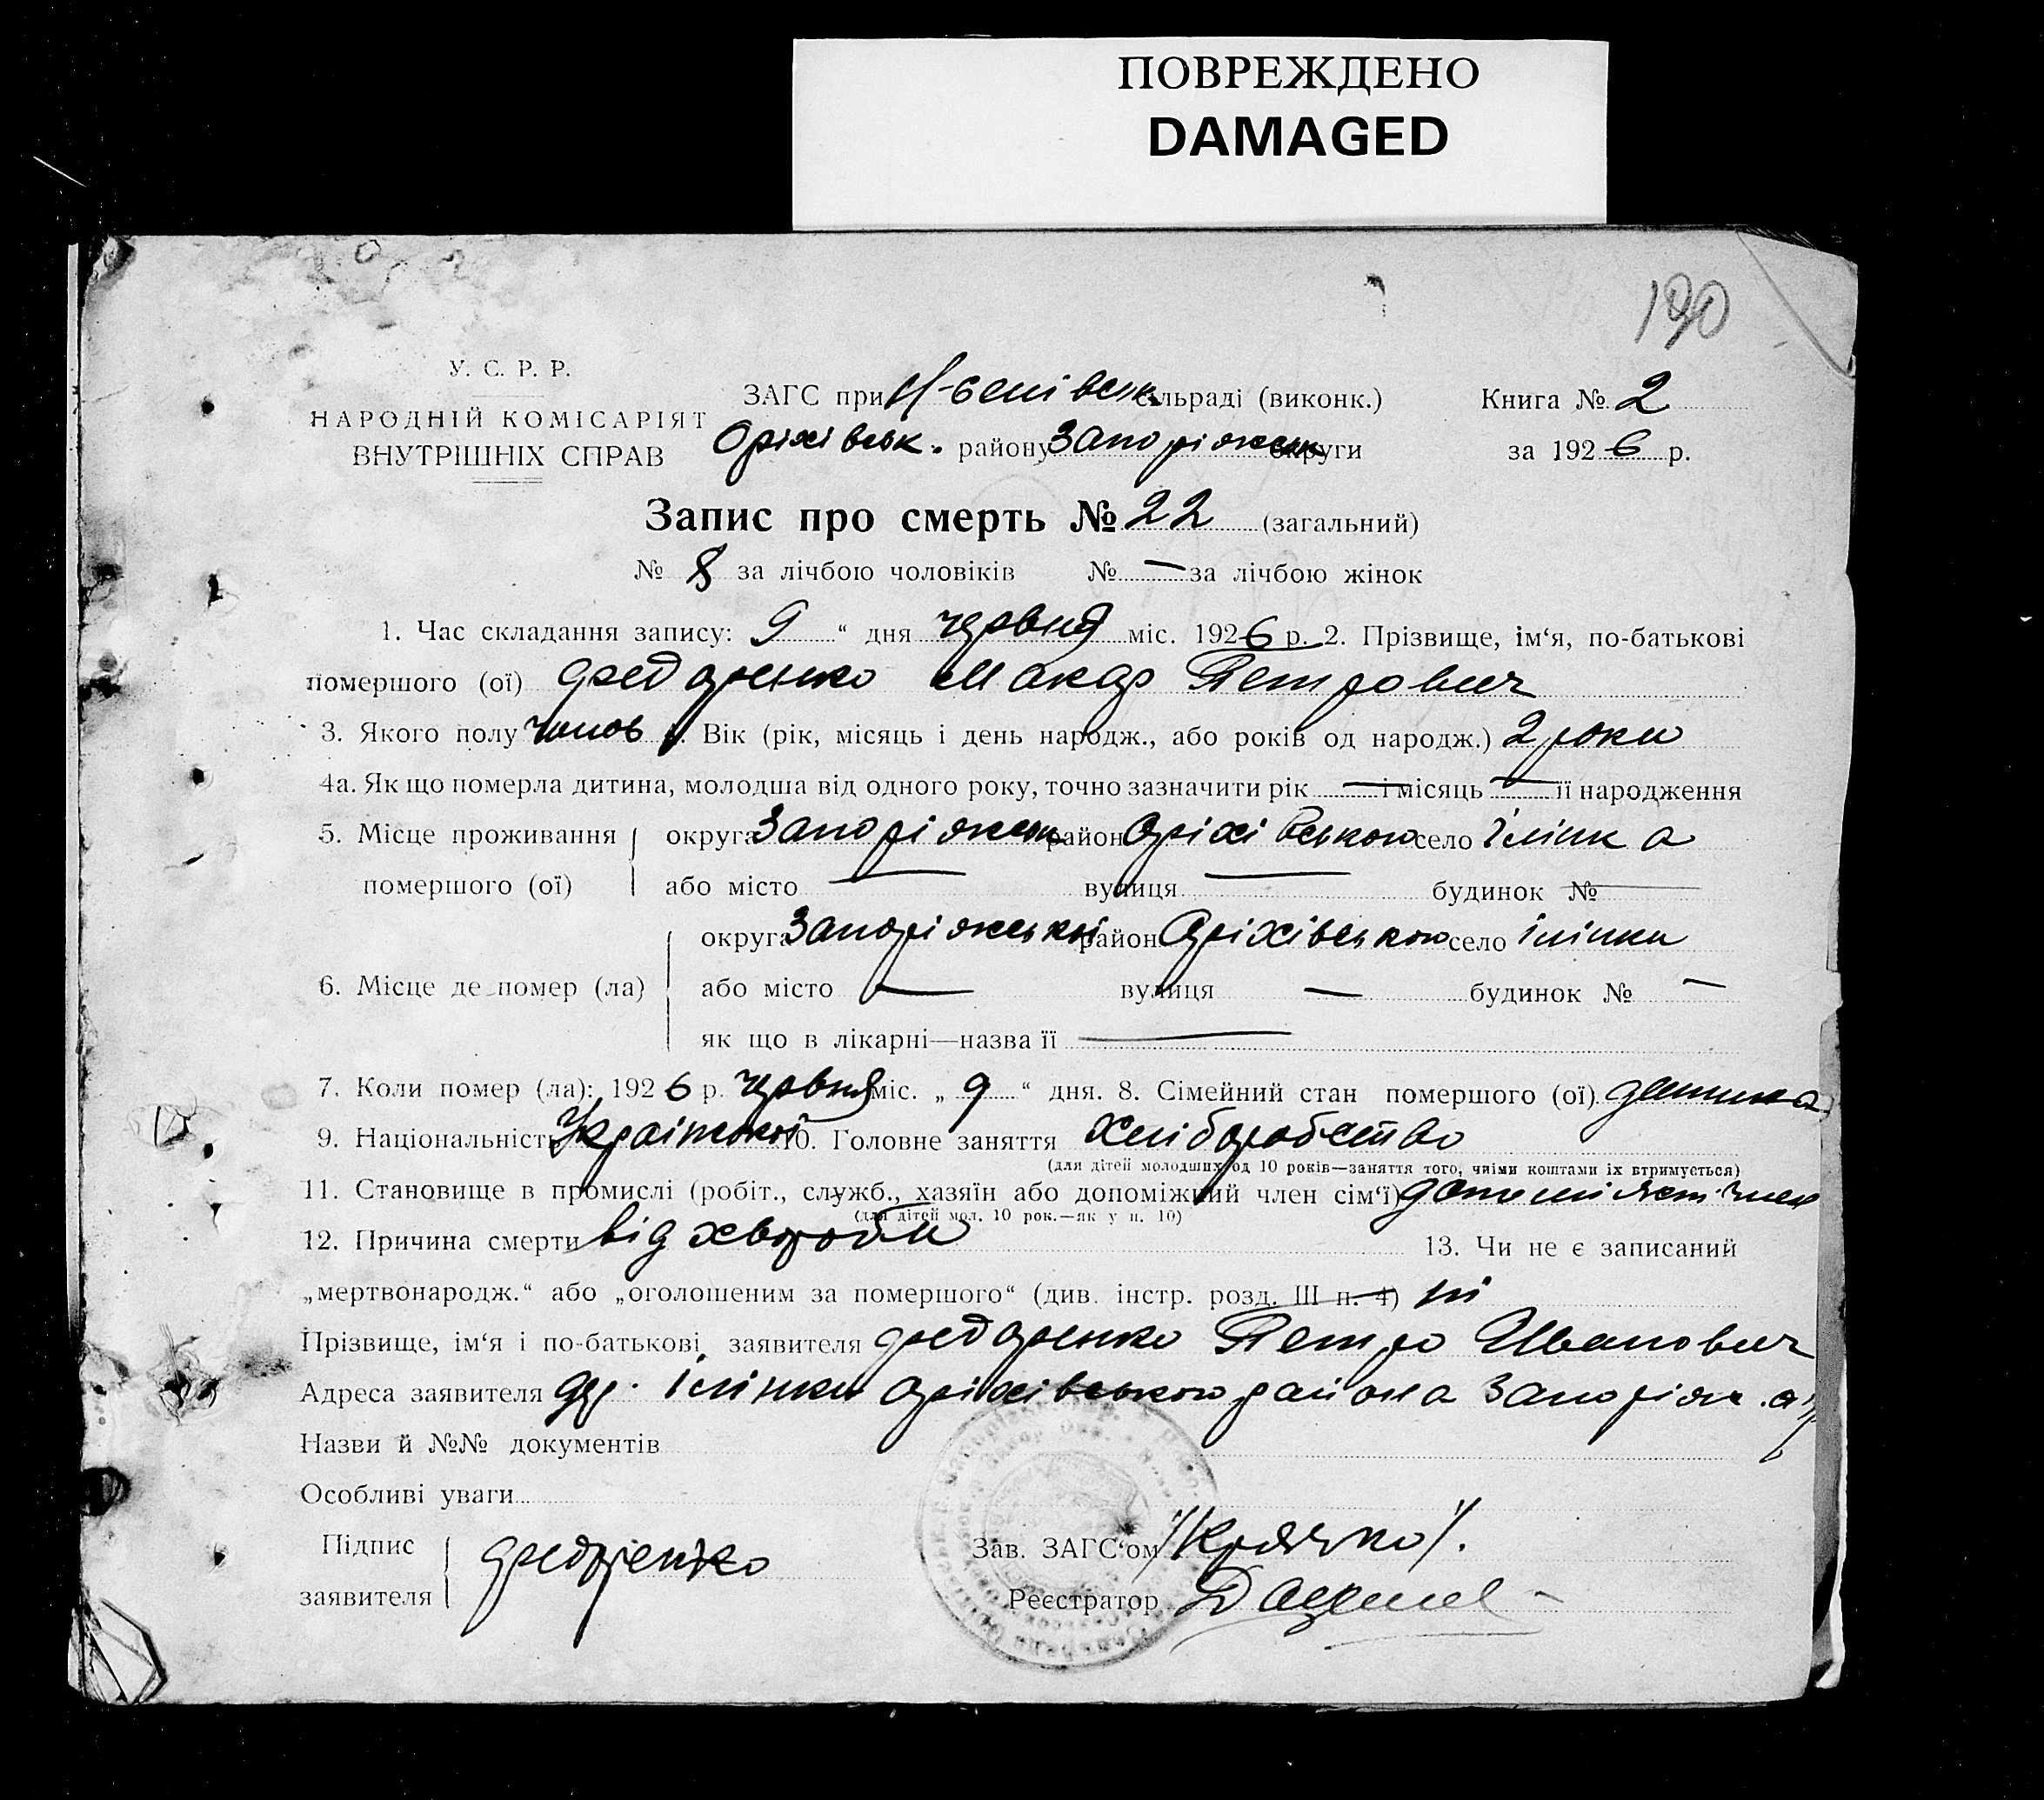 ПОВРЕЖДЕНО
DAMAGED
190
У. С. Р. Р.
НАРОДНІЙ КОМІСАРІЯТ
ВНУТРІШНІХ СПРАВ
ЗАГС при сільраді (виконк.)
Оріхівськ. району Запоріжськ округи
Книга № 2
за 1926 р.
Запис про смерть № 22 (загальний)
№ 8 за лічбою чоловіків № — за лічбою жінок
1. Час складання запису: 9 “ дня червня міс. 1926 р. 2. Прізвище, ім‘я, по-батькові
помершого (ої) Федоренко Макар Петрович
3. Якого полу чолов 4. Вік (рік, місяць і день народж., або років од народж.) 2 роки
4а. Як що померла дитина, молодша від одного року, точно зазначити рік — і місяць — її народження
5. Місце проживання помершого (ої) округа Запоріжськ район Оріхівського село Їлінка
або місто — вулиця — будинок № —
6. Місце де помер (ла) округа Запоріжській район Оріхівського село Ілінки
або місто — вулиця — будинок № —
як що в лікарні—назва її —
7. Коли помер (ла): 1926 р. червня міс. „ 9 “ дня. 8. Сімейний стан помершого (ої) дитина
9. Національність Української 10. Головне заняття Хліборобство
(для дітей молодших од 10 років—заняття того, чиїми коштами їх втримується)
11. Становище в промислі (робіт., служб., хазяїн або допоміжний член сім‘ї)
(для дітей мол. 10 рок.—як у п. 10)
12. Причина смерти від хвороби 13. Чи не є записаний
„мертвонародж.“ або „оголошеним за помершого“ (див. інстр. розд. III п. 4) ні
Прізвище, ім‘я і по-батькові заявителя Федоренко Петро Иванович
Адреса заявителя Ілінки Оріхівського района Запоріж.
Назви й №№ документів
Особливі уваги
Підпис заявителя Федоренко
Зав. ЗАГС‘ом /Крячко/.
Реєстратор